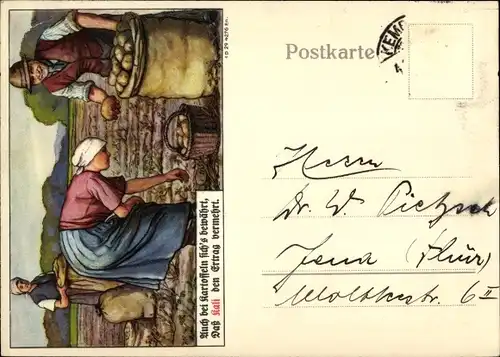 Postkarte
KEMP
I D 29 4276 E/I.
Auch bei Kartoffeln sich's bewährt,
Daß Kali den Ertrag vermehrt.
Herrn
Dr. W. Pietzsch
Jena (Thür)
Moltkestr. 6 II